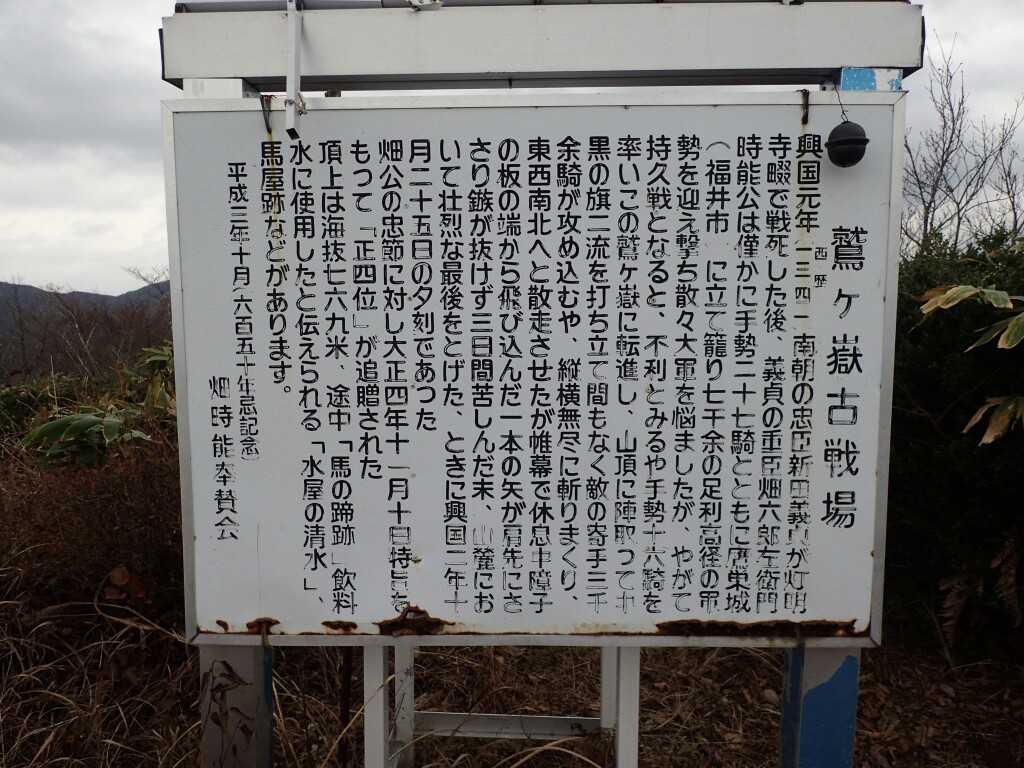 鷲ヶ嶽古戦場
興国元年(西歴一三四一南朝の忠臣新田義貞が灯明
寺畷で戦死した後、義貞の重臣畑六郎左衛門
時能公は僅かに手勢二十七騎とともに鷹巣城
(福井市 に立て籠り七千余の足利高径の軍
勢を迎え撃ち散々大軍を悩ましたが、やがて
持久戦となると、不利とみるや手勢十六騎を
率いこの鷲ヶ嶽に転進し、山頂に陣取って
黒の旗二流を打ち立て間もなく敵の寄手三千
余騎が攻め込むや、縦横無尽に斬りまくり、
東西南北へと散走させたが帷幕で休息中障子
の板の端から飛び込んだ一本の矢が肩先にさ
さり鏃が抜けず三日間苦しんだ末、山麓にお
いて壮烈な最後をとげた、ときに興国二年十
月二十五日の夕刻であった
畑公の忠節に対し大正四年十一月十日特旨を
もって「正四位」が追贈された
頂上は海抜七六九米、途中「馬の蹄跡」飲料
水に使用したと伝えられる「水屋の清水」、
馬屋跡などがあります。
平成三年十月(六百五十年忌記念)
畑時能奉賛会